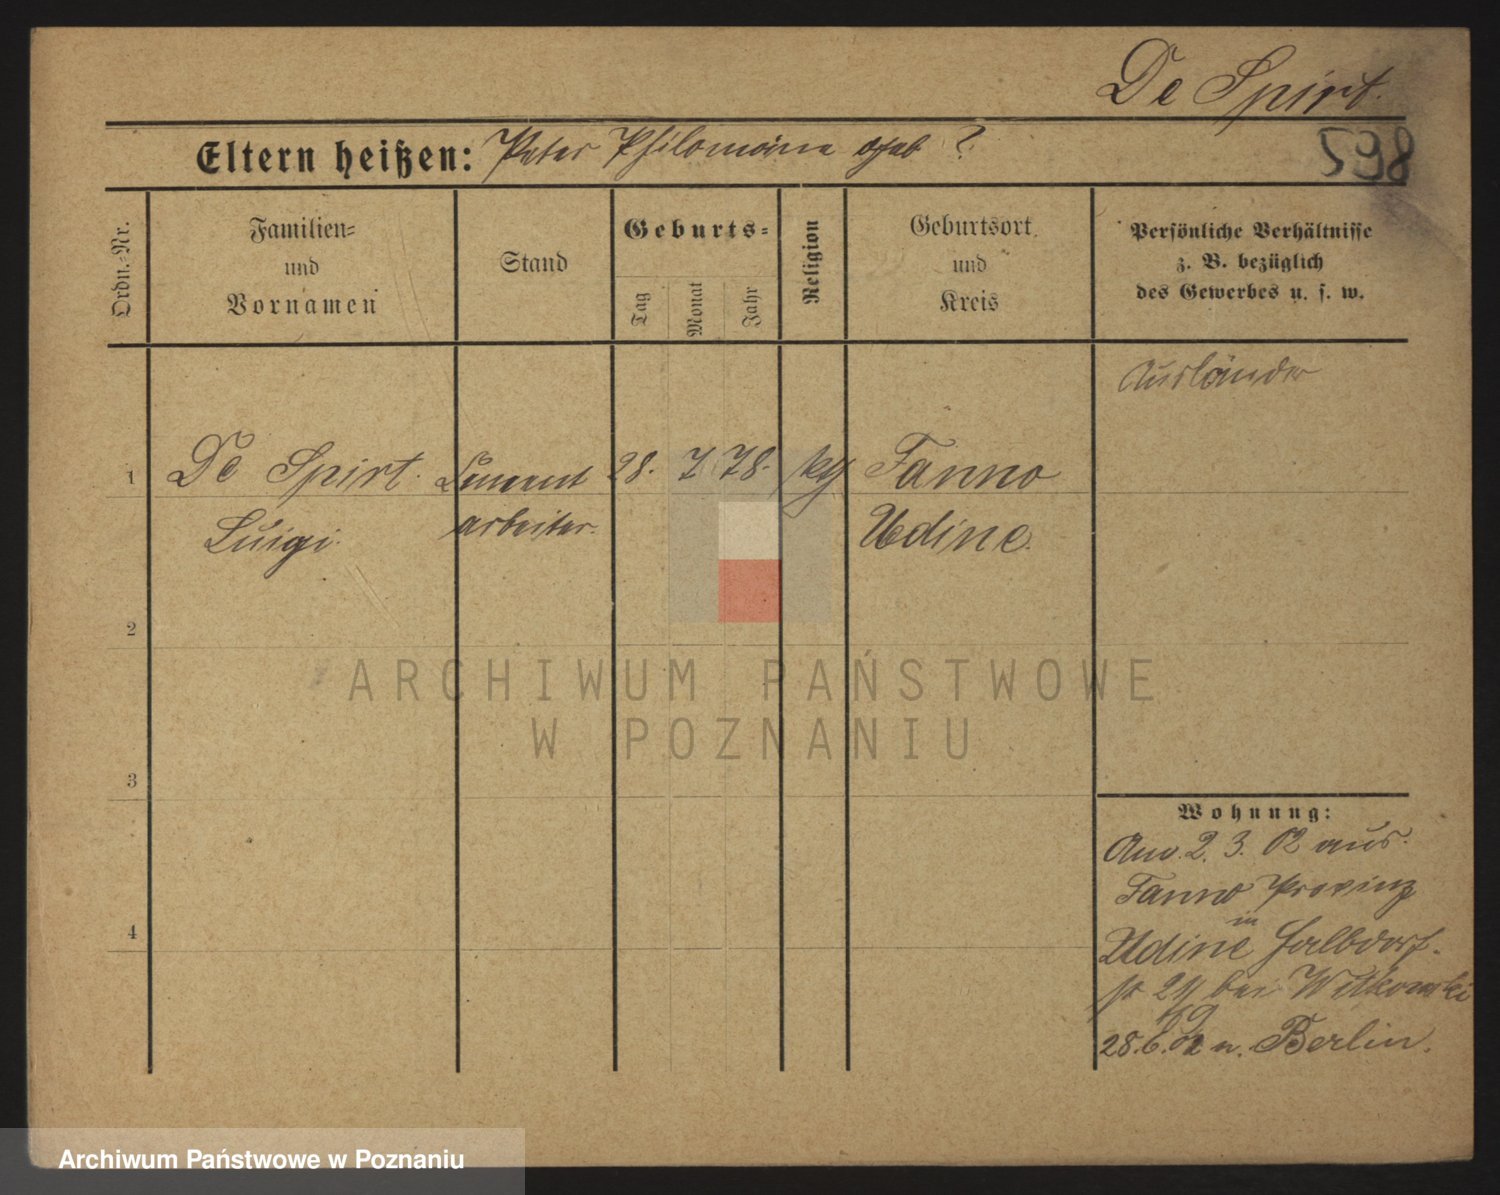 De Spirt.
Eltern heißen: Peter Philomäna geb ?
598
Ordn.-Nr.
Familien-
und
Vornamen
Stand
Geburts-
Tag
Monat
Jahr
Religion
Geburtsort
und
Kreis
Persönliche Verhältnisse
z. B. bezüglich
des Gewerbes u. s. w.
Ausländer
1
De Spirt. Cement 28. 7 78. kg Fanno
Luigi. arbeiter. Udine.
2
3
4
Wohnung:
Am 2. 3. 02 aus
Fanno Provinz
in
Udine Halbdorf-
str 29 bei Witkowski
28.6.02 n. Berlin.
ARCHIWUM PAŃSTWOWE
W POZNANIU
Archiwum Państwowe w Poznaniu